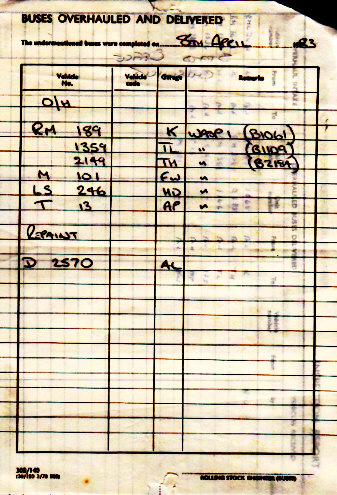 BUSES OVERHAULED AND DELIVERED
The undermentioned buses were completed on 8TH APRIL 83
Vehicle No. Vehicle code Garage Remarks
O/H
RM 189 K WABP1 (B1061)
1359 TL " (B1109)
2149 TH "
M 101 FW "
LS 246 HD "
T 13 AP "
REPAINT
D 2570 AL
302/140
ROLLING STOCK ENGINEER (BUSES)